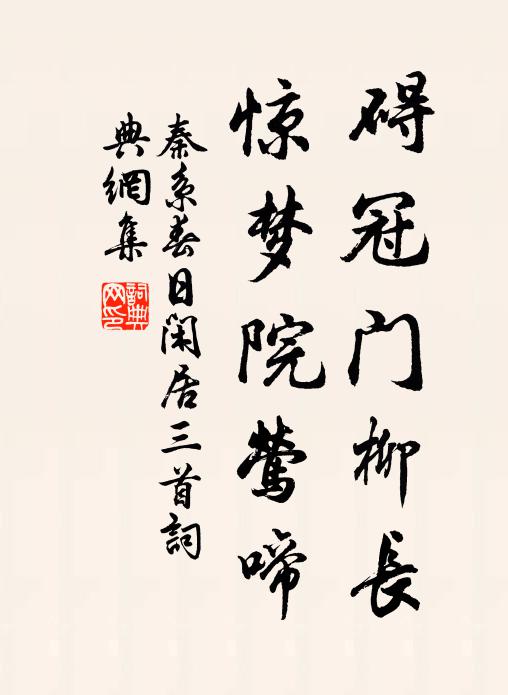 碍冠门柳長
惊梦院莺啼
秦系春日闲居三首詞
典網集
詞典
网印